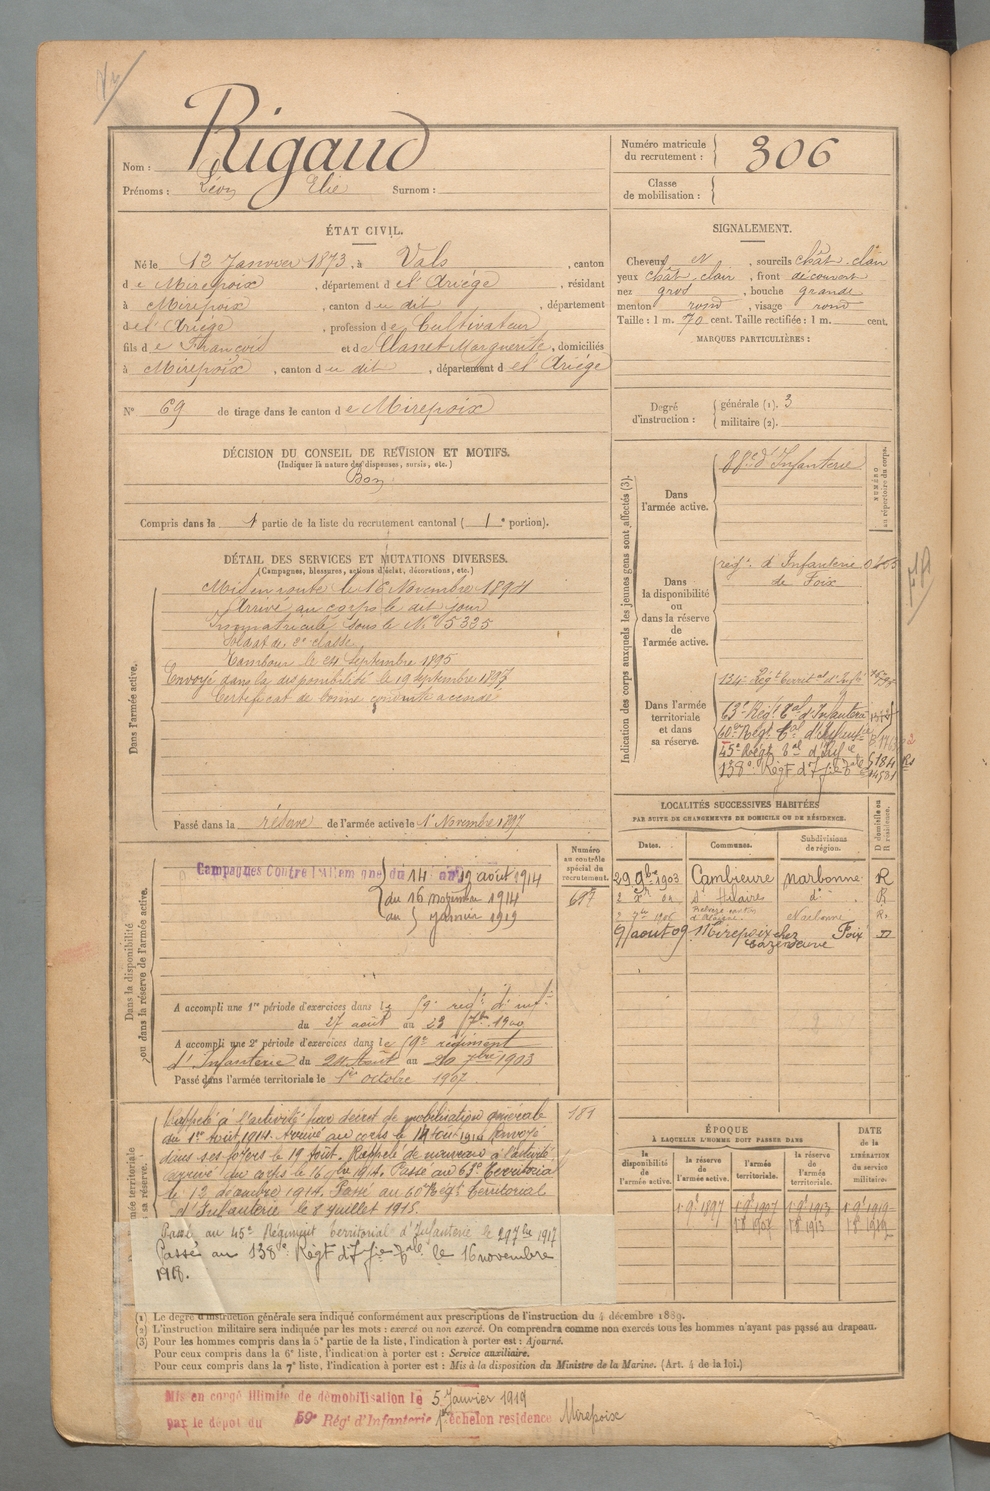 Nom : Rigaud
Prénoms : Léon Elie Surnom :
Numéro matricule du recrutement : 306
Classe de mobilisation :
ÉTAT CIVIL.
Né le 12 Janvier 1873, à Vals, canton
de Mirepoix, département de l'Ariège, résidant
à Mirepoix, canton du dit, département
de l'Ariège, profession de Cultivateur
fils de François et de Classet Marguerite, domiciliés
à Mirepoix, canton du dit, département de l'Ariège
N° 69 de tirage dans le canton de Mirepoix
SIGNALEMENT.
Cheveux N, sourcils chât. clair
yeux chât. clair, front découvert
nez gros, bouche grande
menton rond, visage rond
Taille : 1 m. 70 cent. Taille rectifiée : 1 m. cent.
MARQUES PARTICULIÈRES :
Degré d'instruction : générale (1). 3
militaire (2).
DÉCISION DU CONSEIL DE REVISION ET MOTIFS.
(Indiquer la nature des dispenses, sursis, etc.)
Bon
Compris dans la 1 partie de la liste du recrutement cantonal ( 1e portion).
DÉTAIL DES SERVICES ET MUTATIONS DIVERSES.
(Campagnes, blessures, actions d'éclat, décorations, etc.)
Dans l'armée active.
Mis en route le 16 Novembre 1894
Arrivé au corps le dit jour
Immatriculé sous le N° 5335
Soldat de 2e classe
Tambour le 24 Septembre 1895
Envoyé dans la disponibilité le 19 septembre 1897
Certificat de bonne conduite accordé
Passé dans la réserve de l'armée active le 1er Novembre 1897
Indication des corps auxquels les jeunes gens sont affectés (3).
NUMÉRO au répertoire du corps.
Dans l'armée active.
88e d'Infanterie
Dans la disponibilité ou dans la réserve de l'armée active.
régt. d'Infanterie
de Foix
Dans l'armée territoriale et dans sa réserve.
134e Régt territal d'Infie
63e Régt Tal d'Infanterie
60e Régt Tal d'Infanterie
45e Régt Tal d'Infie
138e Régt d'Infie Tale
LOCALITÉS SUCCESSIVES HABITÉES
PAR SUITE DE CHANGEMENTS DE DOMICILE OU DE RÉSIDENCE.
Dates. Communes. Subdivisions de région. D domicile ou R résidence.
29 9bre 1903 Cambieure Narbonne R
St Hilaire do R
1906 Narbonne R.
9 août 09 Mirepoix chez Foix D
Cazeneuve
Dans la disponibilité ou dans la réserve de l'armée active.
Numéro au contrôle spécial du recrutement.
687
Campagnes Contre l'Allemagne du 14 au 19 août 1914
du 16 novembre 1914
au 5 janvier 1919
A accompli une 1re période d'exercices dans le 59e régt d'inf.
du 27 août au 23 7bre 1900
A accompli une 2e période d'exercices dans le 59e régiment
d'Infanterie du 24 Août au 20 7bre 1903
Passé dans l'armée territoriale le 1er octobre 1907
181
Rappelé à l'activité par décret de mobilisation générale
du 1er Août 1914. Arrivé au corps le 14 août 1914. Renvoyé
dans ses foyers le 19 Août. Rappelé de nouveau à l'activité
arrivé au corps le 16 9bre 1914. Passé au 63e Territorial
le 12 décembre 1914. Passé au 60e Régt territorial
d'Infanterie le 8 juillet 1915.
Passé au 45e Régiment territorial d'Infanterie le 29 7bre 1917
Passé au 138e Régt d'Infie Tale le 16 novembre
1918.
ÉPOQUE
À LAQUELLE L'HOMME DOIT PASSER DANS
DATE de la LIBÉRATION du service militaire.
la disponibilité de l'armée active. la réserve de l'armée active. l'armée territoriale. la réserve de l'armée territoriale.
1 9e 1897 1 9e 1907 1 9e 1913 1 9e 1919
1 8e 1907 1 8e 1913 1 8e 1919
(1) Le degré d'instruction générale sera indiqué conformément aux prescriptions de l'instruction du 4 décembre 1889.
(2) L'instruction militaire sera indiquée par les mots : exercé ou non exercé. On comprendra comme non exercés tous les hommes n'ayant pas passé au drapeau.
(3) Pour les hommes compris dans la 5e partie de la liste, l'indication à porter est : Ajourné.
Pour ceux compris dans la 6e liste, l'indication à porter est : Service auxiliaire.
Pour ceux compris dans la 7e liste, l'indication à porter est : Mis à la disposition du Ministre de la Marine. (Art. 4 de la loi.)
Mis en congé illimité de démobilisation le 5 Janvier 1919
par le dépôt du 59e Rég' d'Infanterie 1er échelon résidence Mirepoix